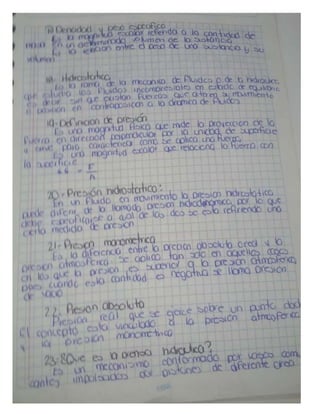 Densidad y peso específico
Es la magnitud escalar referida a la cantidad de
masa en un determinado volumen de la sustancia
Es la relación entre el peso de una sustancia y su
volumen
18- Hidrostatica
Es la rama de la mecanica de Fluidos o de la hidraulica
que estudia los fluidos incompresibles en estado de equilibrio
es decir, sin que existan fuerzas que alteren su movimiento
o posicion en contraposicion a la dinamica de fluidos
19- Definición de presión
Es una magnitud física que mide la proyección de la
fuerza en direccion perpendicular por la unidad de superficie
y sirve para caracterizar como se aplica una fuerza
Es una magnitud escalar que relaciona la fuerza con
la superficie
F
A
20- Presión hidrostatica:
En un fluido en movimiento la presion hidrostatica
puede diferir de la llamada presion hidrodinamica por lo que
debe especificarse a cual de las dos se esta refiriendo una
cierta medida de presion
21- Presion manometrica
Es la diferencia entre la presion absoluta o real y la
presion atmosferica. Se aplica tan solo en aquellos casos
en los que la presion es superior a la presion atmosferica,
pues cuando esta cantidad es negativa se llama presion
de vacio
22. Presion absoluta
Presion real que se ejerce sobre un punto dado
El concepto esta vinculado a la presion atmosferica
y la presion manometrica
23- ¿Que es la prensa hidraulica?
Es un mecanismo conformado por vasos comuni
cantes impulsados por pistones de diferente area